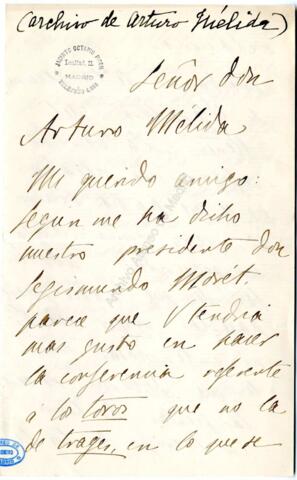 (archivo de Arturo Mélida)
MADRID
Señor don
Arturo Mélida
Mi querido amigo:
segun me ha dicho
nuestro presidente don
Segismundo Moret.
parece que V tendria
mas gusto en hacer
la conferencia referente
á los toros que no la
de trages, en lo que se